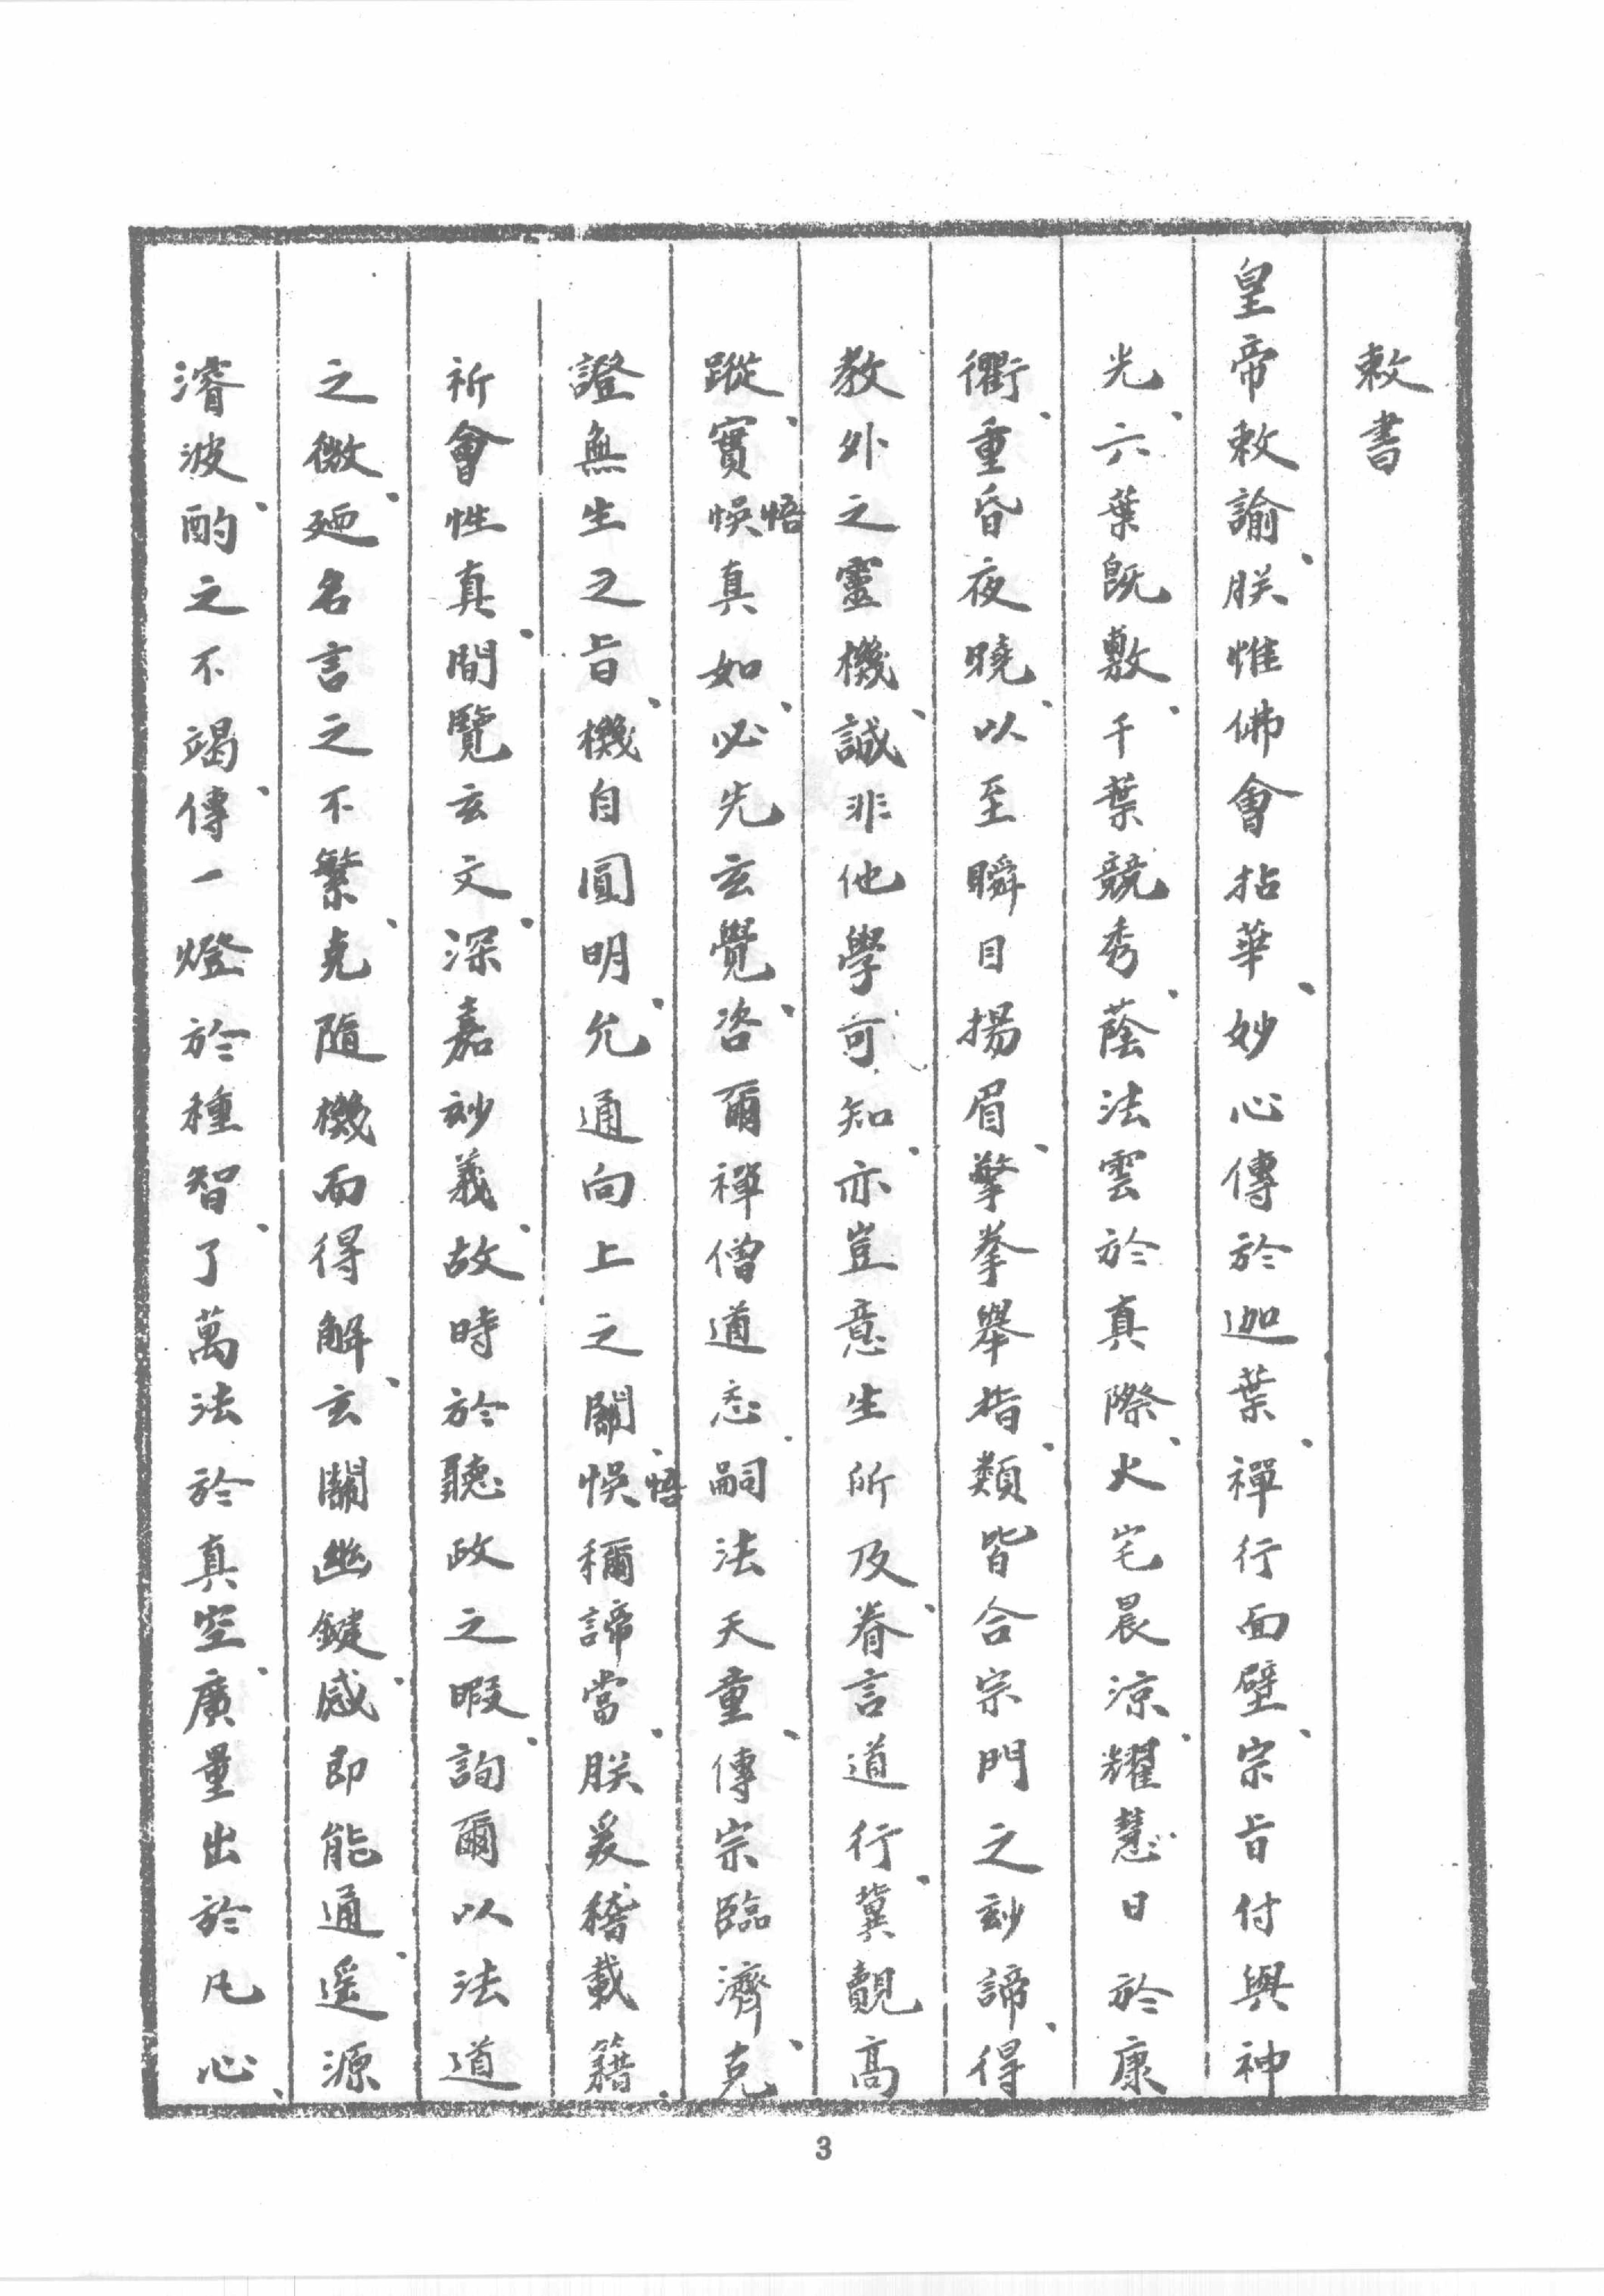 敕書
皇帝敕諭、朕惟佛會拈華、妙心傳於迦葉、禪行面壁、宗旨付與神
光、六葉既敷、千葉競秀、蔭法雲於真際、火宅晨涼、耀慧日於康
衢、重昏夜曉、以至瞬目揚眉、擎拳舉指、類皆合宗門之玅諦、得
教外之靈機、誠非他學可知、亦豈意生所及、眷言道行、冀覿高
蹤、實悞悟真如、必先玄覺、咨爾禪僧道忞、嗣法天童、傳宗臨濟、克
證無生之旨、機自圓明、允通向上之關、悞悟稱諦當、朕爰稽載籍、
祈會性真、閒覽玄文、深嘉玅義、故時於聽政之暇、詢爾以法道
之微、廼名言之不繁、克隨機而得解、玄關幽鍵、感即能通、遥源
濬波、酌之不竭、傳一燈於種智、了萬法於真空、廣量出於凡心、
3